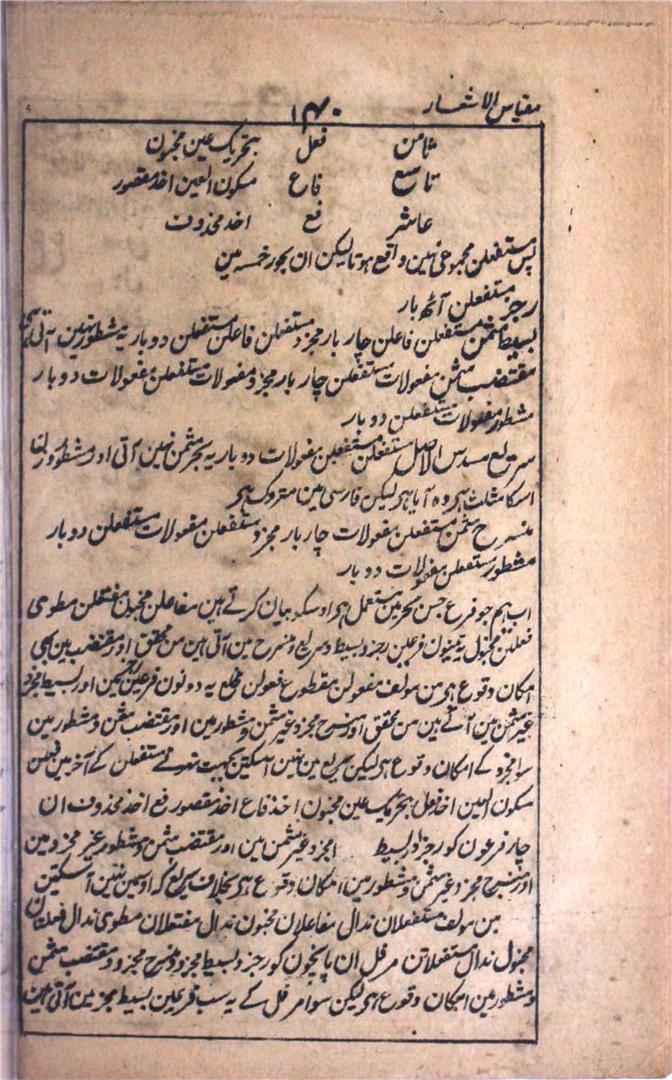 مقیاس الاشعار ۱۴۰
ثامن فعل بتحریک عین مخبون
تاسع فاع سکون العین اخذ مقصور
عاشر فع اخذ محذوف
پس مستفعلن مجموعی نہین واقع ہوتا لیکن ان بحور خمسہ مین
رجز مستفعلن آٹھ بار
بسیط مثمن مستفعلن فاعلن چار بار مجزو مستفعلن فاعلن مستفعلن دو بار یہ مشطور نہین آتی
مقتضب مثمن مفعولات مستفعلن چار بار مجزو مفعولات مستفعلن مفعولات دو بار
مشطور مفعولات مستفعلن دو بار
سریع مسدس الاصل مستفعلن مستفعلن مفعولات دو بار یہ بحر مثمن نہین آتی اور مشطور
اسکا مثلث ہی وہ آیا ہی لیکن فارسی مین متروک ہی
منسرح مثمن مستفعلن مفعولات چار بار مجزو مستفعلن مفعولات مستفعلن دو بار
مشطور مستفعلن مفعولات دو بار
اب ہم جو فرع جس بحر مین مستعمل ہی اوسکو بیان کرتے ہین مفاعلن مخبون مفتعلن مطوی
فعلتن مخبول یہ تینون فرعین رجز و بسیط و سریع و منسرح مین آتی ہین من محقق اور مقتضب مین بھی
امکان وقوع ہی من مولف مفعولن مقطوع فعولن مخلع یہ دونون فرعین رجز مین اور بسیط مجزو
غیر مثمن مین آتے ہین من محقق اور منسرح مجزو غیر مثمن و مشطور مین اور مقتضب مثمن و مشطور مین
سوا مجزو کے امکان وقوع ہی لیکن سریع مین نہین آسکتین بجہت نہونے مستفعلن کے آخر مین فعلن
سکون العین اخذ فعل بتحریک عین مخبون اخذ فاع اخذ مقصور فع اخذ محذوف ان
چار فرعون کو رجز و بسیط مجزو غیر مثمن مین اور مقتضب مثمن و مشطور غیر مجزو مین
اور منسرح مجزو غیر مثمن و مشطور مین امکان وقوع ہی بخلاف سریع کہ اوسمین نہین آسکتین
من مولف مستفعلان مذال مفاعلان مخبون مذال مفتعلان مطوی مذال فعلتان
مخبول مذال مستفعلاتن مرفل ان پانچون کو رجز و بسیط مجزو و منسرح مجزو و مقتضب مثمن
و مشطور مین امکان وقوع ہی لیکن سوا مرفل کے یہ سب فرعین بسیط مجزو مین آتی ہین